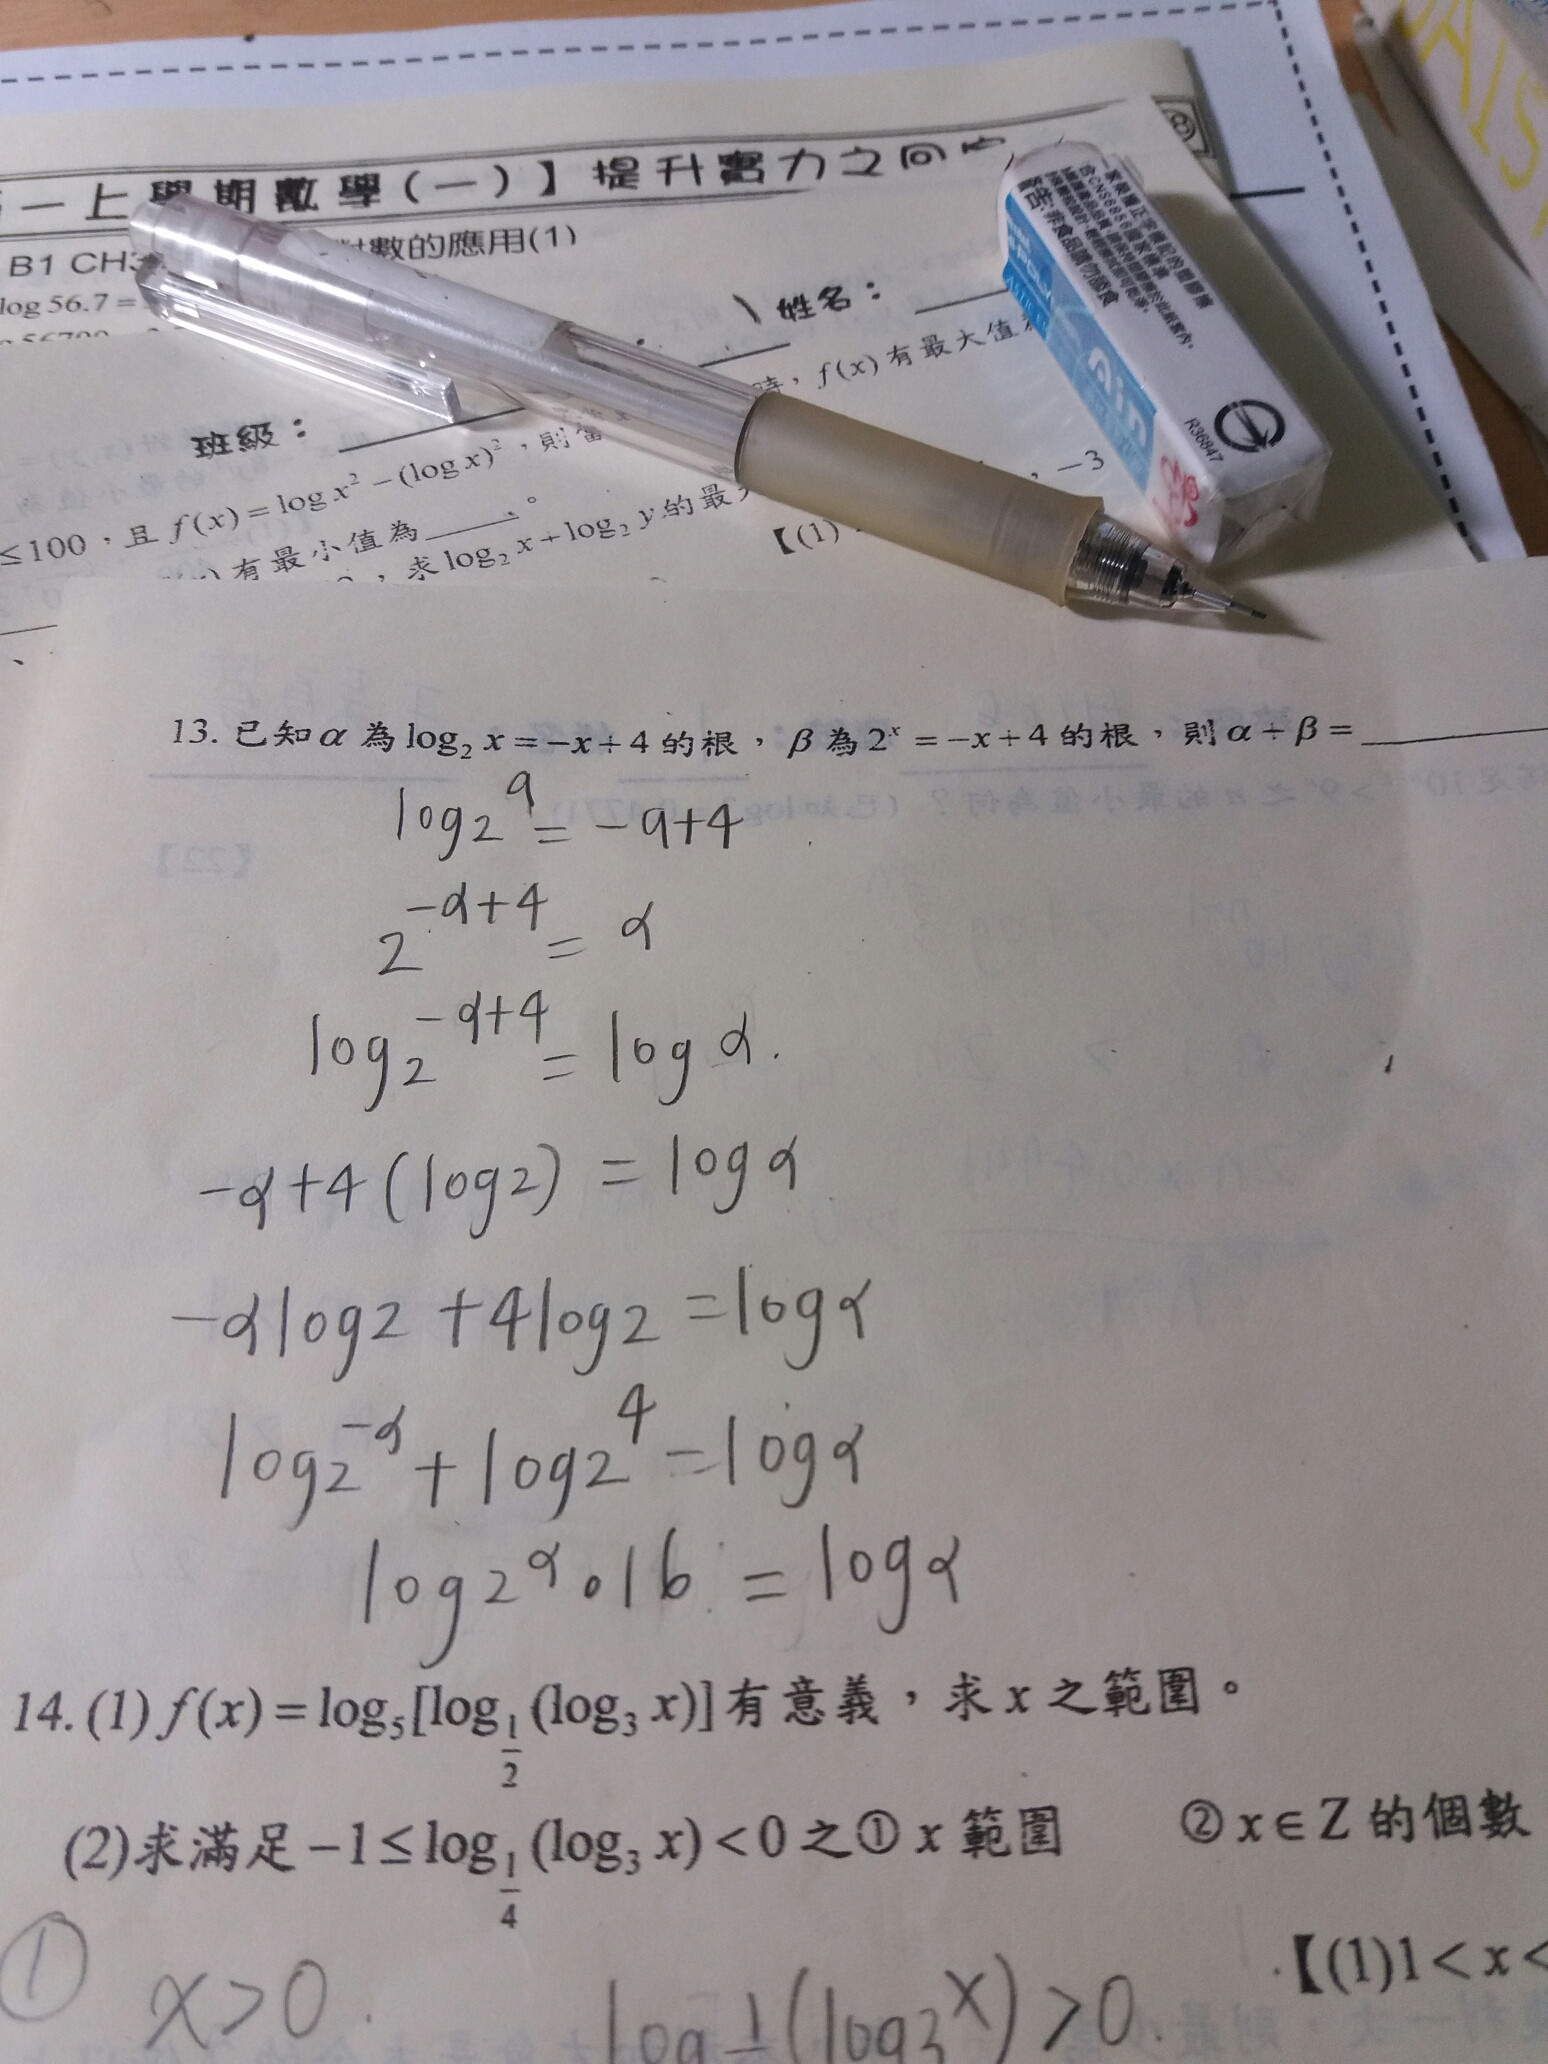 一上學期數學(一)】提升實力之回
B1 CH3 對數的應用(1)
log 56.7=
班級： 姓名：
≤100，且f(x)=log x²-(log x)²，則當x 時，f(x)有最大值
有最小值為____。
，求log₂ x+log₂ y的最
【(1) ，-3
警告:非食品請勿吞食
R36847
13. 已知α為log₂ x=-x+4的根，β為2ˣ=-x+4的根，則α+β=____
log₂ᵅ=-α+4
2^(-α+4)=α
log2^(-α+4)=logα.
-α+4(log2)=logα
-αlog2+4log2=logα
log2^(-α)+log2⁴=logα
log2^α·16=logα
14. (1) f(x)=log₅[log_(1/2)(log₃ x)]有意義，求x之範圍。
(2)求滿足-1≤log_(1/4)(log₃ x)<0之①x範圍 ②x∈Z的個數
【(1)1<x<
① x>0. log ½(log₃ˣ)>0.